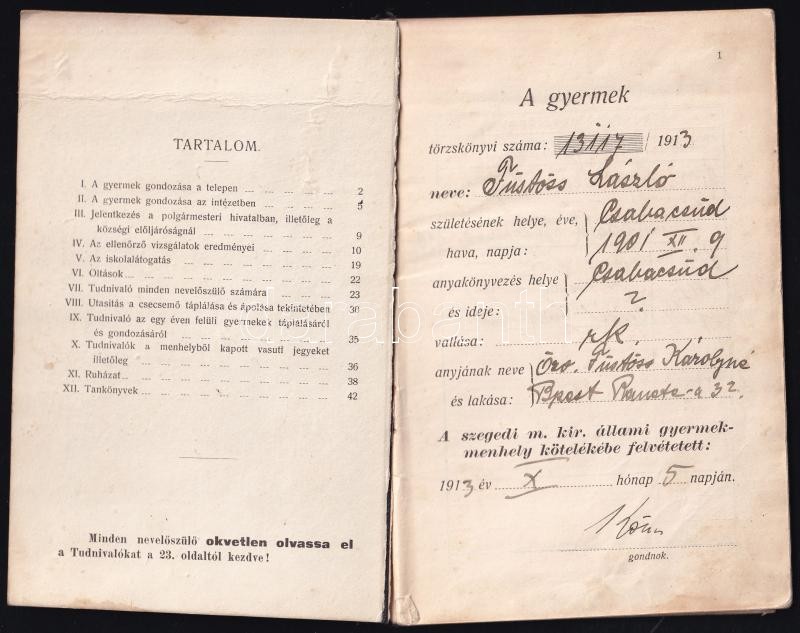 TARTALOM.
I. A gyermek gondozása a telepen 2
II. A gyermek gondozása az intézetben 5
III. Jelentkezés a polgármesteri hivatalban, illetőleg a
községi előljáróságnál 9
IV. Az ellenőrző vizsgálatok eredményei 10
V. Az iskolalátogatás 19
VI. Oltások 22
VII. Tudnivaló minden nevelőszülő számára 23
VIII. Utasítás a csecsemő táplálása és ápolása tekintetében 30
IX. Tudnivaló az egy éven felüli gyermekek táplálásáról
és gondozásáról 35
X. Tudnivalók a menhelyből kapott vasuti jegyeket
illetőleg 36
XI. Ruházat 38
XII. Tankönyvek 42
Minden nevelőszülő okvetlen olvassa el
a Tudnivalókat a 23. oldaltól kezdve!
1
A gyermek
törzskönyvi száma: 13117 / 1913
neve: Füstöss László
születésének helye, éve, Csabacsüd
hava, napja: 1901 XII. 9
anyakönyvezés helye Csabacsüd
és ideje: ?
vallása: rk.
anyjának neve Özv. Füstöss Károlyné
és lakása: Bpest 32.
A szegedi m. kir. állami gyermek-
menhely kötelékébe felvétetett:
1913 év X hónap 5 napján.
gondnok.
darabanth